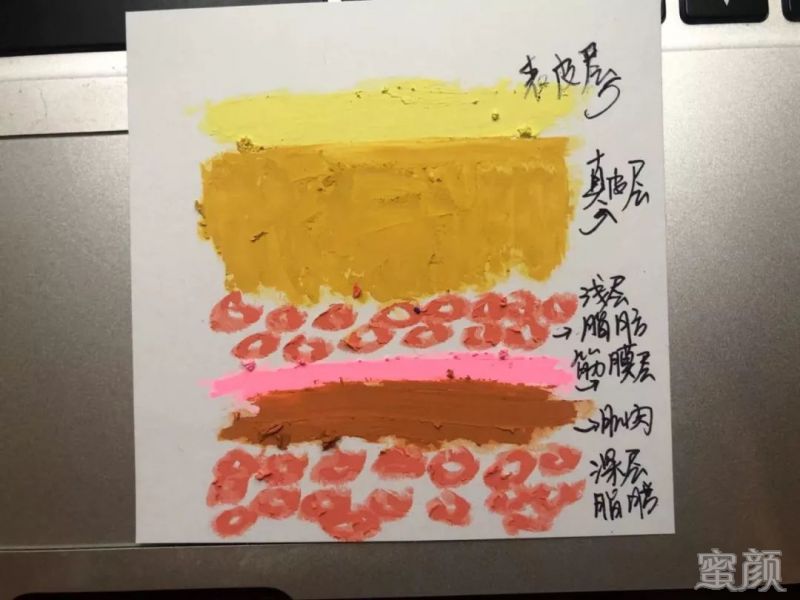 表皮层
真皮层
浅层
脂肪
筋膜层
肌肉
深层
脂肪
蜜颜